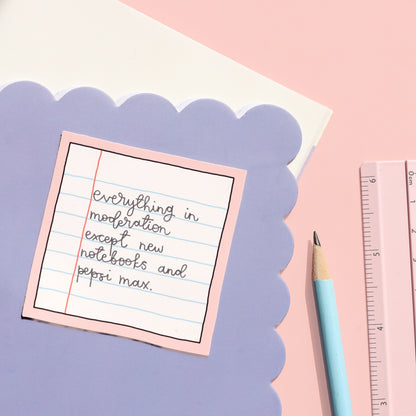 everything in
moderation
except new
notebooks and
pepsi max.
6
5
4
3
0cm
1